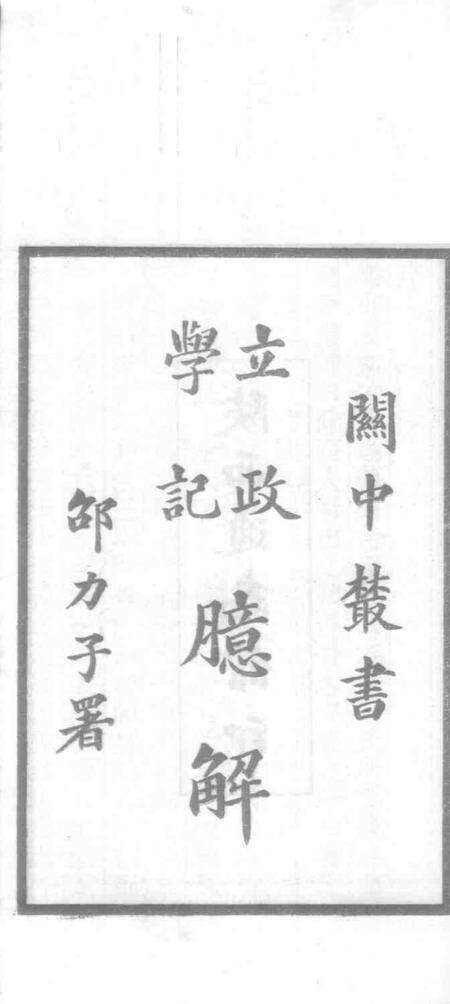 關中叢書
立政
學記
臆解
邵力子署